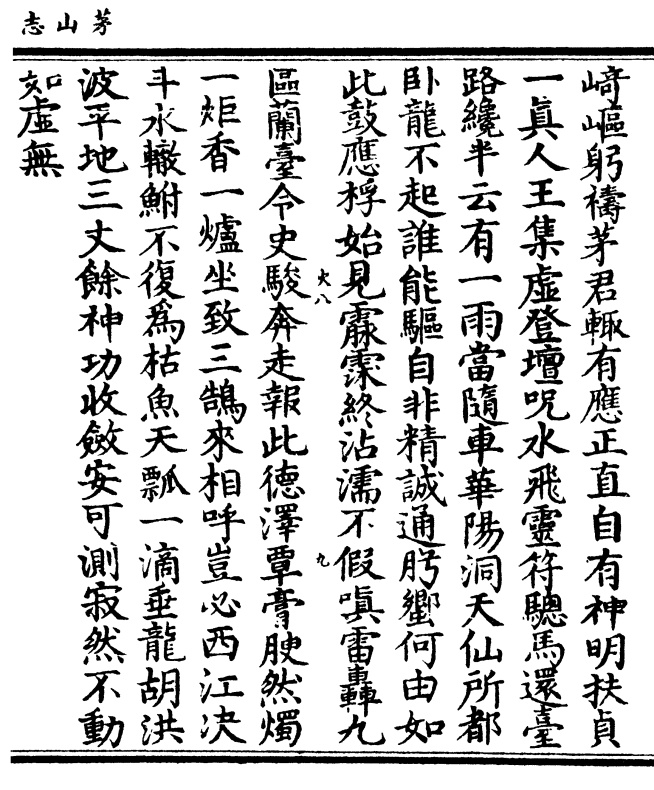 茅山志
﨑嶇躬禱茅君輙有應正直自有神明扶貞
一眞人王集虛登壇呪水飛靈符驄馬還臺
路纔半云有一雨當隨車華陽洞天仙所都
卧龍不起誰能驅自非精誠通肸蠁何由如
此鼓應桴始見霡霂終沾濡不假嗔雷轟九
大八
九
區蘭臺令史駿奔走報此德澤覃膏腴然燭
一炬香一爐坐致三鵠來相呼豈必西江决
斗水轍鮒不復爲枯魚天瓢一滴垂龍胡洪
波平地三丈餘神功收斂安可測寂然不動
如虛無